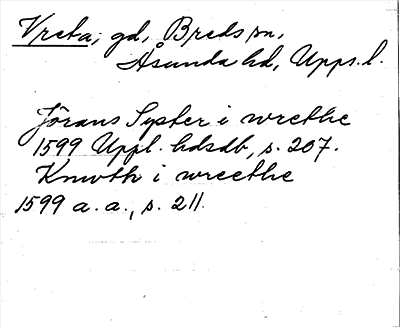 Vreta, gd, Breds sn,
Åsunda hd, Upps. l.
Jörans Syster i wrethe
1599 Uppl. hdsdb, s. 207.
Knwth i wreethe
1599 a. a., s. 211.